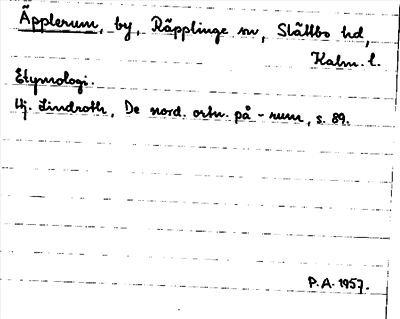 Äpplerum, by, Räpplinge sn, Slättbo hd,
Kalm. l.
Etymologi.
Hj. Lindroth, De nord. ortn. på -rum, s. 89.
P.A. 1957.